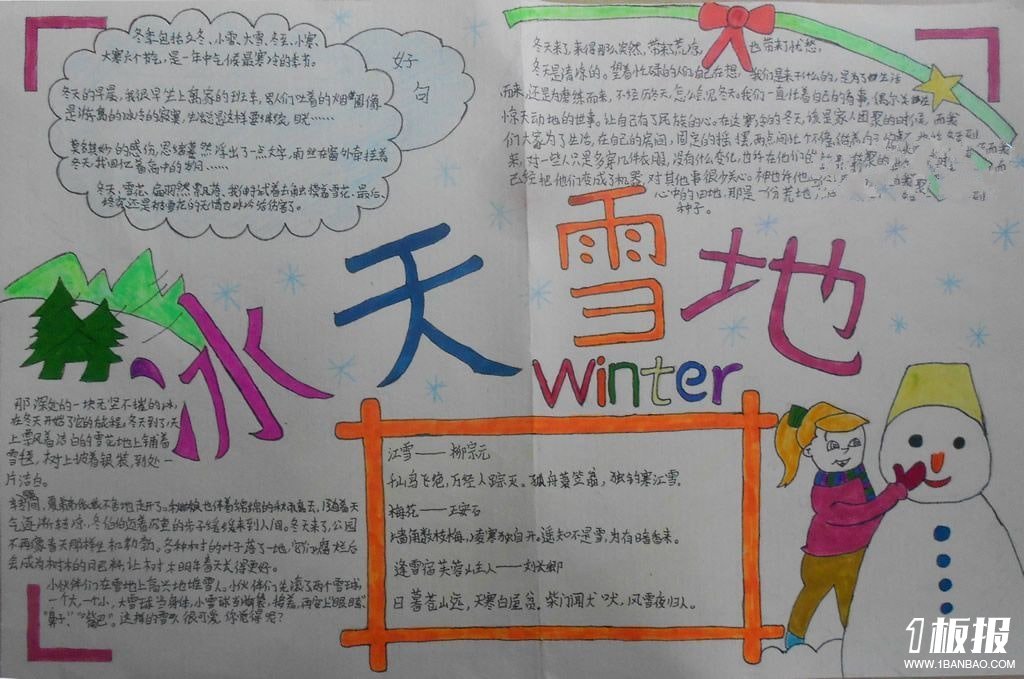 好
句
冬季包括立冬、小雪、大雪、冬至、小寒、
大寒六个节气，是一年中气候最寒冷的季节。
冬天的早晨，我很早坐上离家的班车，男人们吐着的烟圈像
是游离的冰冷的寂寞，生活总是这样要继续，
莫名其妙的感伤，思绪蓦然浮出了一点文字，雨丝在窗外牵挂着
冬天，我回忆着高中的岁月……
冬天，雪花，
终究还是被雪花的无情也冰冷给伤害了。
冬天来了，来得那么突然，带来荒凉，也带来忧愁，
冬天是凄凉的。望着忙碌的人们自己在想，我们是来干什么的，是为了生活
而来，还是为磨练而来，不经历冬天，怎么会见冬天。我们一直忙着自己的事，偶尔关注
惊天动地的世事，让自己有了民族的心。在这寒冷的冬天，该是家人团聚的时候，而我
们大家为了生活，在自己的房间，固定的摇摆，
来，对一些人只是多穿几件衣服，没有什么变化，也许在他们的
已经把他们变成了机器，对其他事很少关心。
心中的田地，那是一份荒地，
种子。
冰天雪地
winter
那深处的一块无坚不摧的冰，
在冬天开始了它的旅程，冬天到了，天
上飘着洁白的雪花，地上铺着
雪毯，树上披着银装，到处一
片洁白。
气逐渐转凉，冬伯伯迈着沉重的步子缓缓来到人间。冬天来了，公园
不再像春天那样生机勃勃。各种树的叶子落了一地，它们腐烂后
会成为树木的日巴料，让树木明年春天长得更好。
小伙伴们在雪地上高兴地堆雪人。小伙伴们先滚了两个雪球，
一个大，一个小，大雪球当身体，小雪球当脑袋，接着，再安上“眼睛”、
“鼻子”、“嘴巴”。这样的雪人很可爱，你觉得呢？
江雪——柳宗元
千山鸟飞绝，万径人踪灭。孤舟蓑笠翁，独钓寒江雪。
梅花——王安石
墙角数枝梅，凌寒独自开。遥知不是雪，为有暗香来。
逢雪宿芙蓉山主人——刘长卿
日暮苍山远，天寒白屋贫。柴门闻犬吠，风雪夜归人。
1板报
WWW.1BANBAO.COM